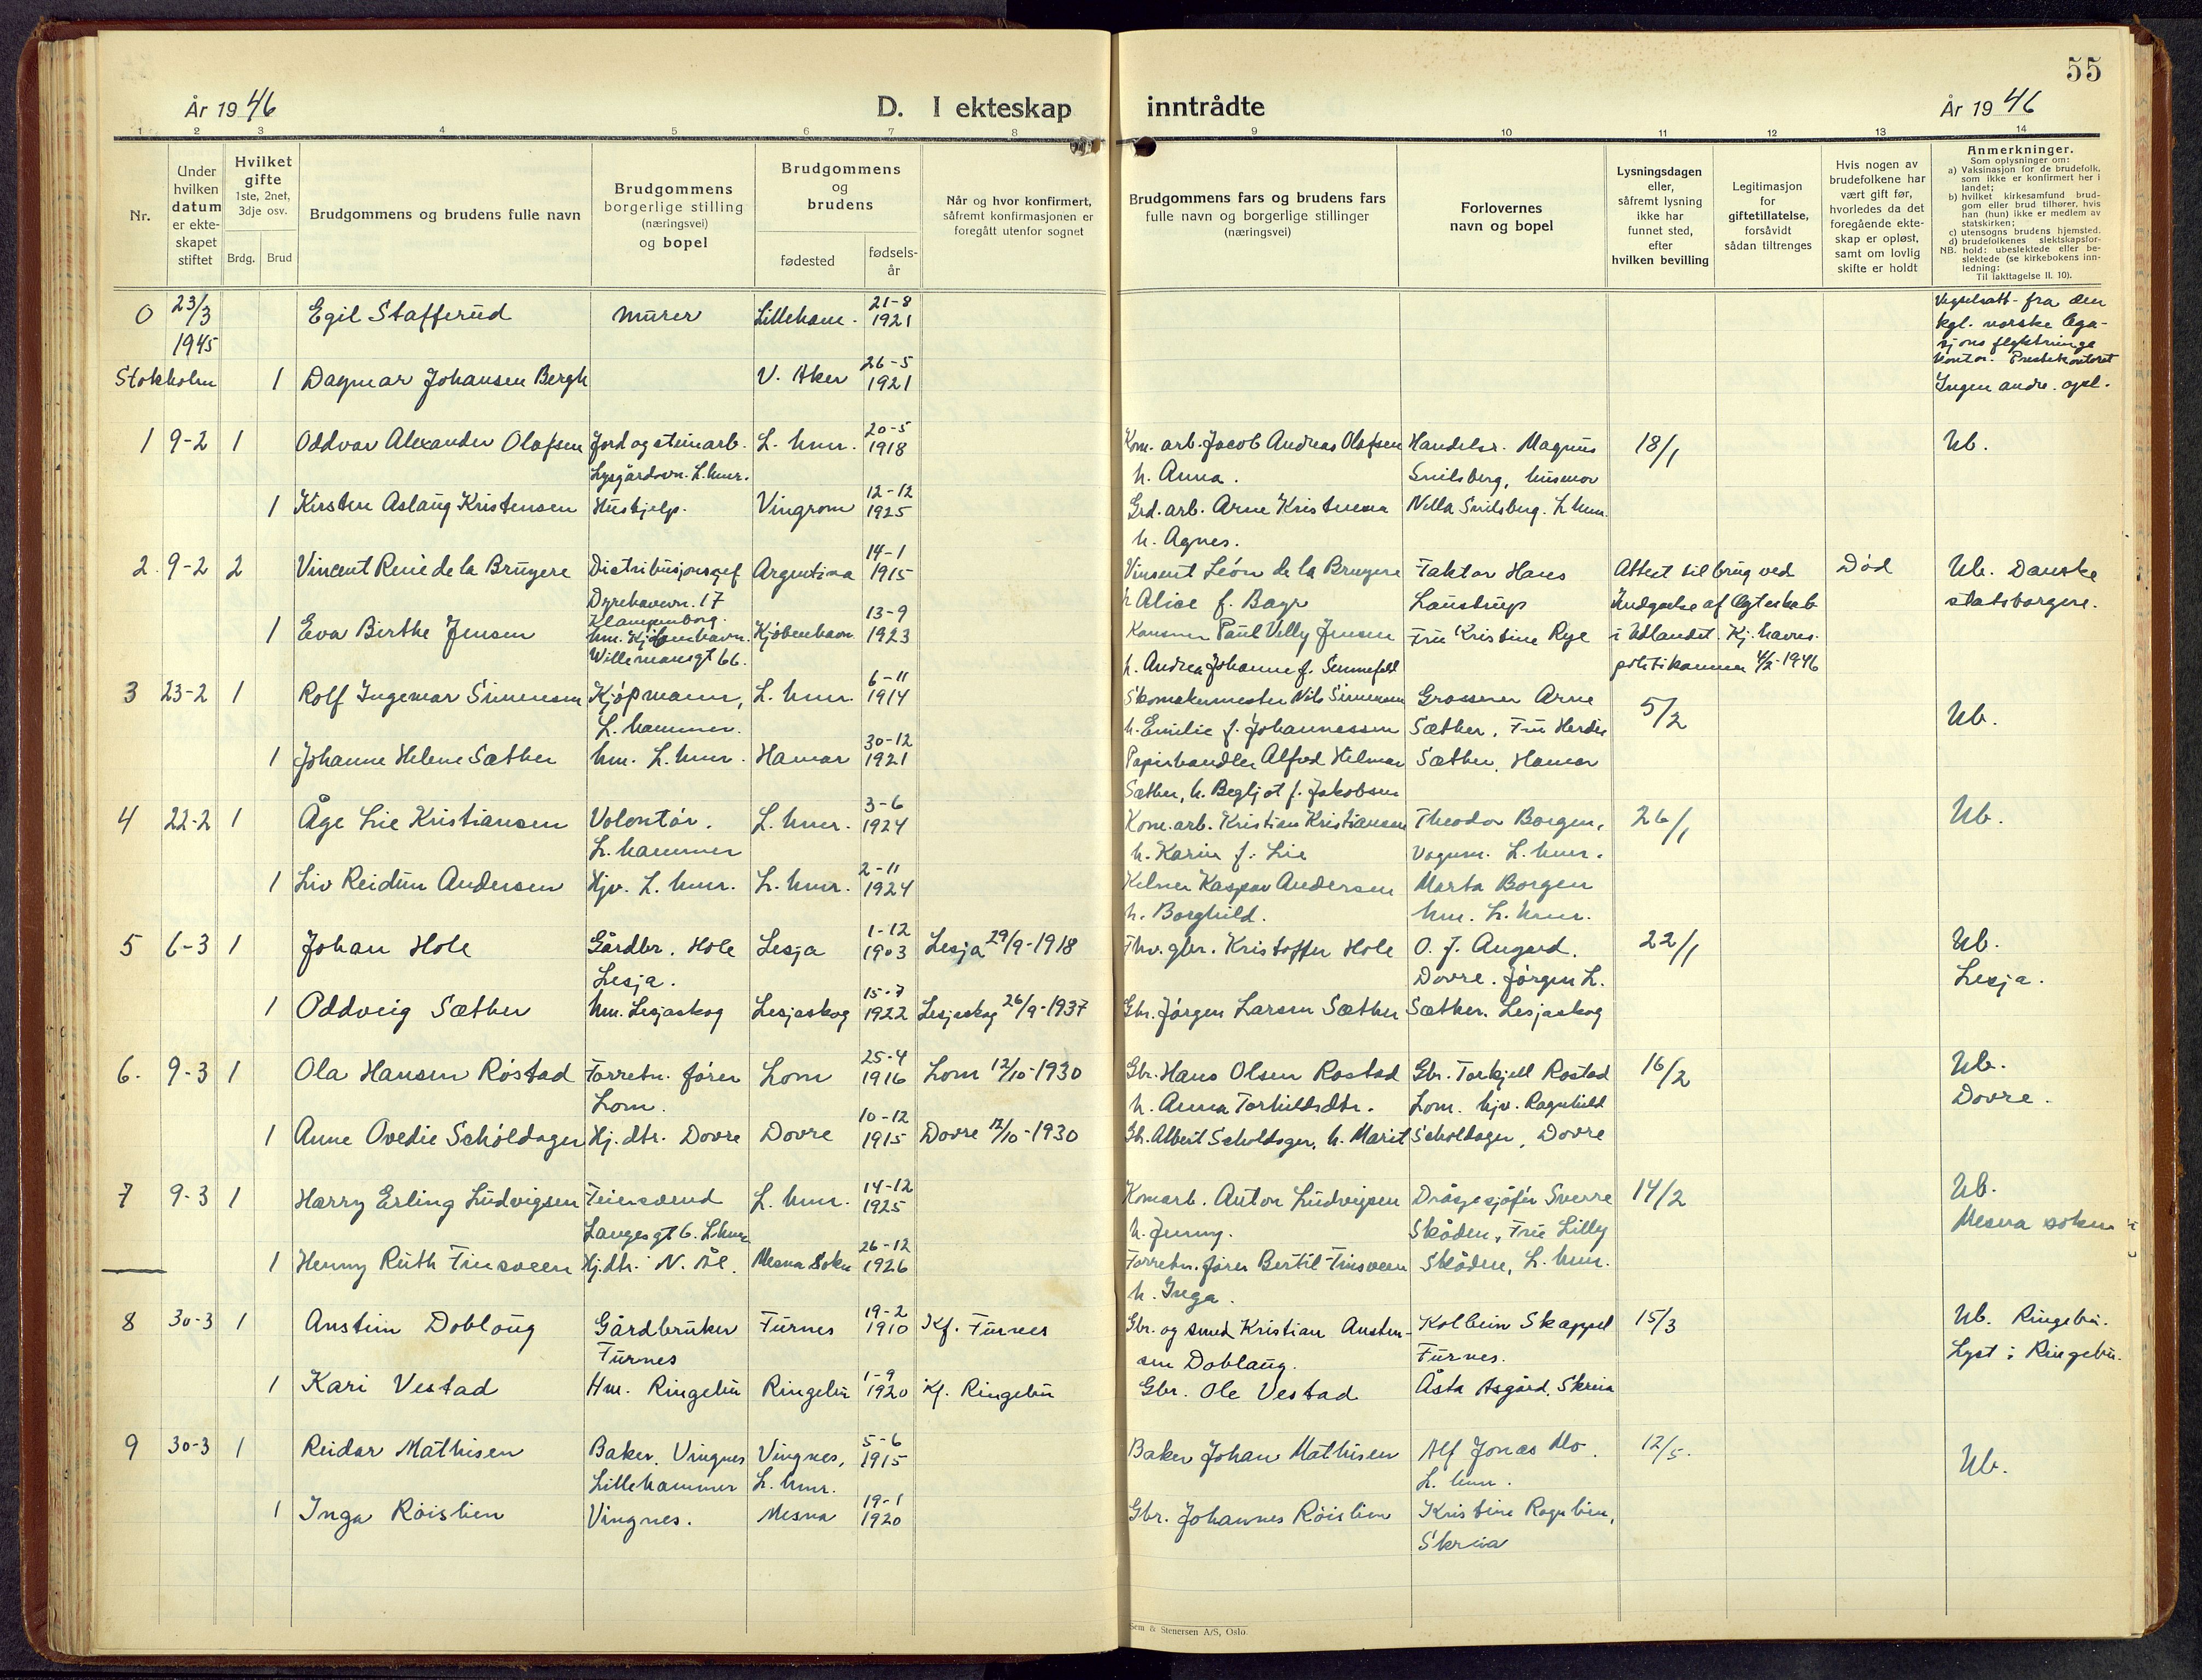 55
År 1946
D. I ekteskap inntrådte
År 1946
1 2 3 4 5 6 7 8 9 10 11 12 13 14
Nr.
Under hvilken datum er ekteskapet stiftet
Hvilket gifte 1ste, 2net, 3dje osv.
Brdg. Brud
Brudgommens og brudens fulle navn
Brudgommens borgerlige stilling (næringsvei) og bopel
Brudgommens og brudens
fødested
fødselsår
Når og hvor konfirmert, såfremt konfirmasjonen er foregått utenfor sognet
Brudgommens fars og brudens fars fulle navn og borgerlige stillinger (næringsvei)
Forlovernes navn og bopel
Lysningsdagen eller, såfremt lysning ikke har funnet sted, efter hvilken bevilling
Legitimasjon for giftetillatelse, forsåvidt sådan tiltrenges
Hvis nogen av brudefolkene har vært gift før, hvorledes da det foregående ekteskap er opløst, samt om lovlig skifte er holdt
Anmerkninger.
Som oplysninger om:
a) Vaksinasjon for de brudefolk, som ikke er konfirmert her i landet;
b) hvilket kirkesamfund brudgom eller brud tilhører, hvis han (hun) ikke er medlem av statskirken;
c) utensogns brudens hjemsted.
d) brudefolkenes slektskapsforhold: ubeslektede eller beslektede (se kirkebokens innledning:
NB. Til iakttagelse II. 10).
0 23/3 1945 Egil Stafferud murer Lilleham. 21-8 1921
fra den
kgl. norske
kontor. Prestekontoret
Stokholm 1 Dagmar Johansen Bergh V. Aker 26-5 1921 Ingen andre. opl.
1 9-2 1 Oddvar Alexander Olafsen Jord og steinarb. L. hmr. 20-5 1918 Kom. arb. Jacob Andreas Olafsen Handelsr. Magnus 18/1 Ub.
Lysgårdsvn. L. hmr. h. Anna. Snilsberg, husmor
1 Kirsten Aslaug Kristensen Hushjelp. Vingrom 12-12 1925 Grd. arb. Arne Kristensen Nella Snilsberg. L. hmr.
h. Agnes.
2. 9-2 2 Vincent René de la Bruyere Distribusjonsgef Argentina 14-1 1915 Vinsent Léon de la Bruyere Faktor Hans Attest til brug ved Død Ub. Danske
Dyrehavevn. 17 h Alice f. Laustrup Indgaelse af Ægteskab statsborgere.
Klampenborg.
1 Eva Birthe Jensen hm. Kjøbenhavn. Kjøbenhavn 13-9 1923 Paul Velly Jensen Fru Kristine Rye i Udlandet. Kj. havns.
Willemoesgt 66. h. Andrea Johanne f. politikammer 4/2-1946
3 23-2 1 Rolf Ingemar Simensen Kjøpmann, L. hmr. 6-11 1914 Skomakermester Nils Simensen Grosserer Arne 5/2 Ub.
L. hammer. h. Emilie f. Johannessen Sæther, Fru Herdis
1 Johanne Helene Sæther hm. L. hmr. Hamar 30-12 1921 Papirhandler Alfred Hilmar Sæther, Hamar
Sæther, h. Begljot f. Jakobsen
4 22-2 1 Åge Lie Kristiansen Volontør. L. hmr. 3-6 1924 Kom. arb. Kristian Kristiansen Theodor Borgen, 26/1 Ub.
L. hammer h. Karin f. Lie Vognm. L. hmr.
1 Liv Reidun Andersen Hjv. L. hmr. L. hmr. 2-11 1924 Kelner Kaspar Andersen Marta Borgen
h. Borghild. hm. L. hmr.
5 6-3 1 Johan Hole Gårdbr. Hole Lesja 1-12 1903 Lesja 29/9-1918 Fhv. gbr. Kristoffer Hole O. J. Angard. 22/1 Ub.
Lesja. Dovre. Jørgen L. Lesja.
1 Oddveig Sæther hm. Lesjaskog Lesjaskog 15-7 1922 Lesjaskog 26/9-1937 Gbr. Jørgen Larsen Sæther Sæther. Lesjaskog
6. 9-3 1 Ola Hansen Røstad Forretn. fører Lom 25-4 1916 Lom 12/10-1930 Gbr. Hans Olsen Rostad Gbr. Torkjell Rostad 16/2 Ub.
Lom. h. Anna Torhildsdtr. Lom. hjv. Ragnhild Dovre.
1 Anne Ovedie Schöldager Hj. dtr. Dovre Dovre 10-12 1915 Dovre 12/10-1930 Gb. Albert Scholdager, h. Marit Scholdager, Dovre
7 9-3 1 Harry Erling Ludvigsen Feiersvend L. hmr. 14-12 1925 Komarb. Anton Ludvigsen Drosjesjåfør Sverre 14/2 Ub.
Langesgt 6. L.hmr h. Jenny. Skåden, Fru Lilly Mesna sokn
1 Henny Ruth Finsveen Hj. dtr. N. Ål. Mesna Sokn 26-12 1926 Forretn. fører Bertil Finsveen Skåden, L. hmr.
h. Inga.
8 30-3 1 Austin Dobloug Gårdbruker Furnes 19-2 1910 Kf. Furnes Gbr. og smed Kristian Austen- Kolbein Skappel 15/3 Ub. Ringebu.
Furnes sen Doblaug. Furnes. Lyst i Ringebu.
1 Kari Vestad Hm. Ringebu Ringebu 1-9 1920 Kf. Ringebu Gbr. Ole Vestad Åsta Asgård. Skreia
9 30-3 1 Reidar Mathisen Baker, Vingnes Vingnes, 5-6 1915 Baker Johan Mathisen Alf Jonas Mo. 12/5. Ub.
Lillehammer L. hmr. L. hmr.
1 Inga Röislien Vingnes. Mesna 19-1 1920 Gbr. Johannes Röislien Kristine Rognlien,
Skreia
Sem & Stenersen A/S, Oslo.